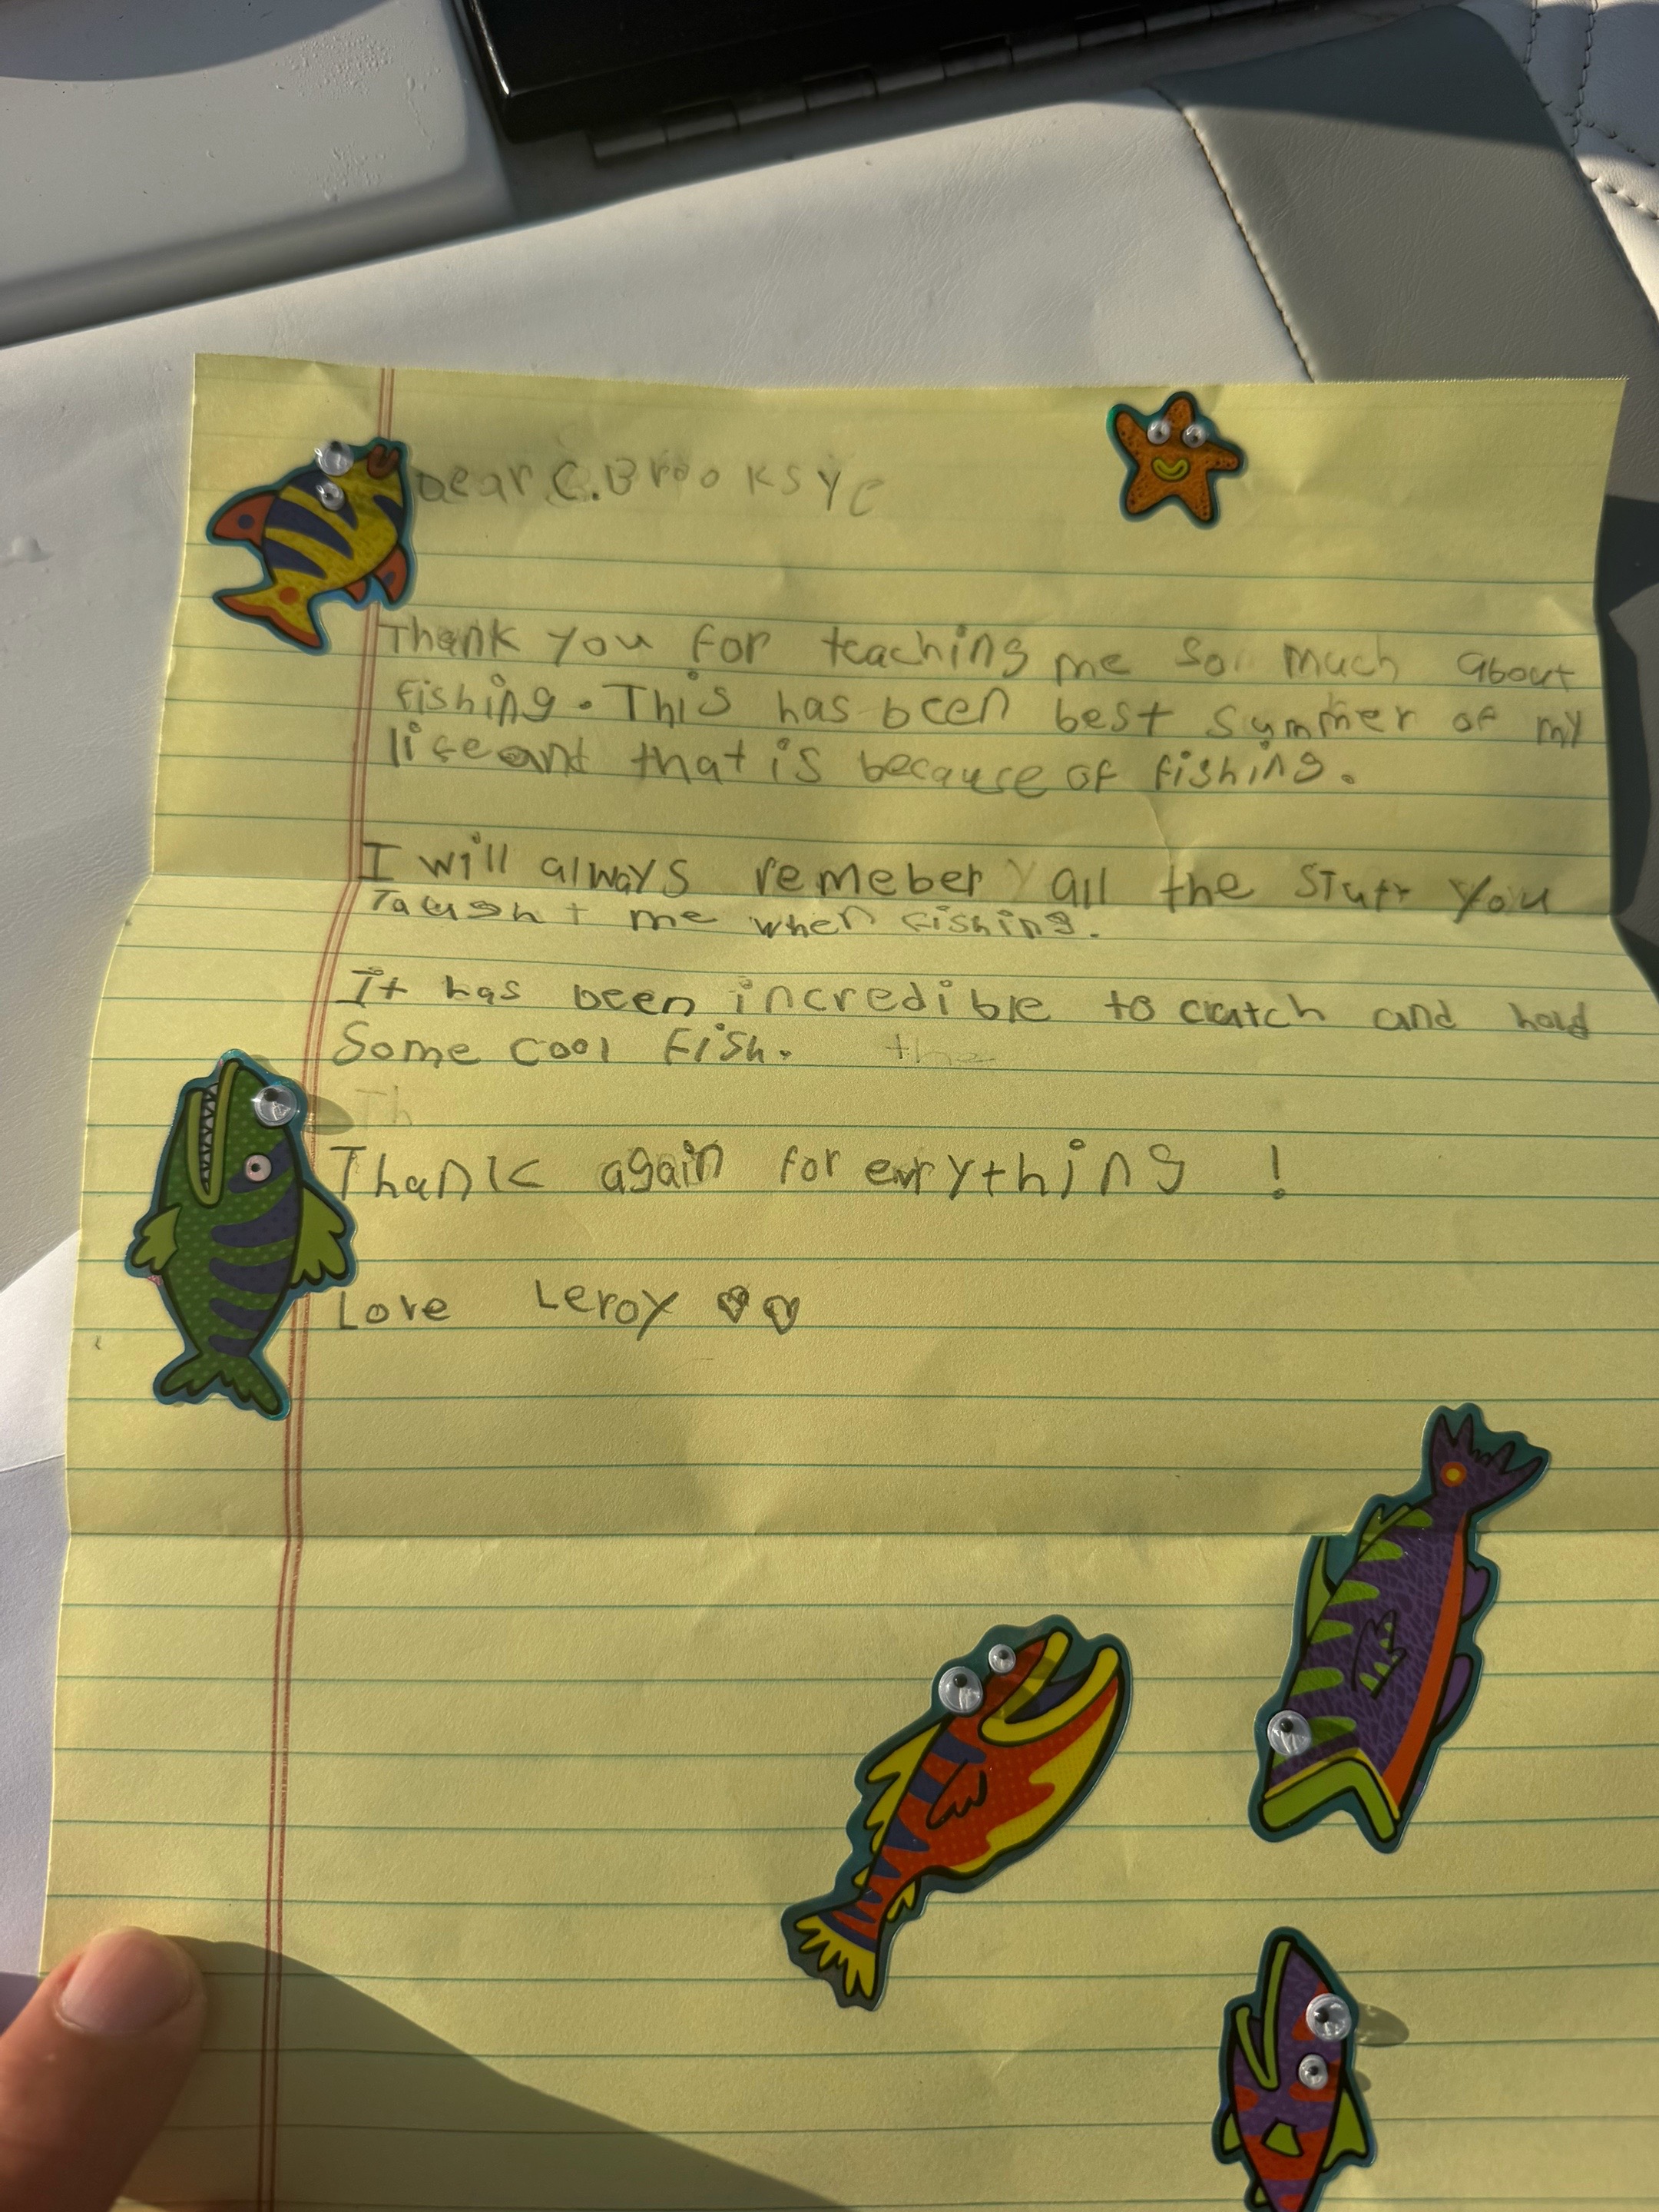 Dear C.BrooksYC
Thank you for teaching me so much about
fishing. This has been best summer of my
life and that is because of fishing.
I will always remeber all the stuff you
Taught me when fishing.
It has been incredible to catch and hold
Some cool fish. the
Th
Thank again for evrything !
Love Leroy ♡♡